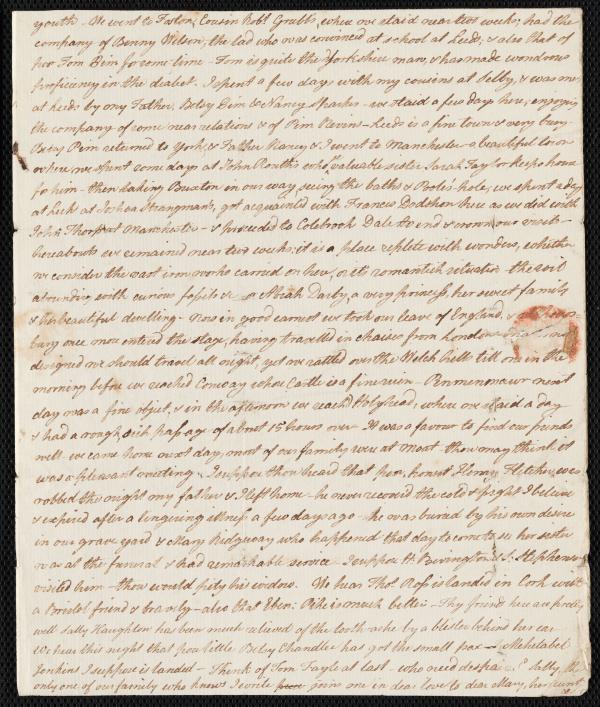 youth - We went to Foston, Cousin Robt. Grubb's, where we staid near two weeks; had the
company of Benny Wilson, the lad who was convinced at school at Leeds; & also that of
her Tom Pim for some time - Tom is quite the Yorkshire man, & has made wondrous
proficiency in the dialect. I spent a few days with my cousins at Selby, & was met
at Leeds by my Father, Betsy Pim & Nancy Sparks - we staid a few days here, enjoying
the company of some near relations & of Pim Nevins - Leeds is a fine town & very busy
Betsy Pim returned to York, & Father Nancy & I went to Manchester a beautiful town
where we spent some days at John Routh's whose valuable sister Sarah Taylor keeps house
for him - then taking Buxton in our way seeing the baths & Poole's-hole, we spent a day
at Leek at Joshua Strangman's, got acquainted with Francis Dodshon there as we did with
John Thorp at Manchester - & proceeded to Colebrook Dale to end & crown our visits -
hereabouts we remained near two weeks; it is a place replete with wonders, whether
we consider the vast iron works carried on here, or its romantick situation the soil
abounding with curious fossils & - Abiah Darby, a very princess, her sweet family
& her beautiful dwelling - Now in good earnest we took our leave of England, &
bury once more entered the stage, having travelled in chaises from London
designed we should travel all night, yet we rattled over the Welch hills till one in the
morning before we reached Conway whose Castle is a fine ruin - Penmenmawr next
day was a fine object, & in the afternoon we reach'd Holyhead, where we staid a day
& had a rough, sick passage of about 15 hours over It was a favour to find our friends
well. we came home next day, most of our family were at Moat thou may think it
was a pleasant meeting - I suppose thou heard that poor, honest Henry Fletcher, was
robbed the night my father & I left home - he never recovered the cold & fright I believe
& expired after a lingering illness a few days ago - he was buried by his own desire
in our grave yard & Mary Ridgway who happened that day to come to see her sister
was at the funeral & had remarkable service - I suppose H. Bevington & S. Stephens
visited him - thou would pity his widow. We hear Thos. Ross is landed in Cork with
a Bristol friend & bravely - also that Eben: Pike is much better - Thy friends here are pretty
well Sally Haughton has been much relieved of the tooth-ache by a blister behind her ear
We hear this night that poor little Betsy Chandler has got the small pox - Mehetabel
Jenkins I suppose is landed - Think of Tom Fayle at last - who need despair! Sally the
only one of our family who knows I write joins me in dear love to dear Mary, her aunt